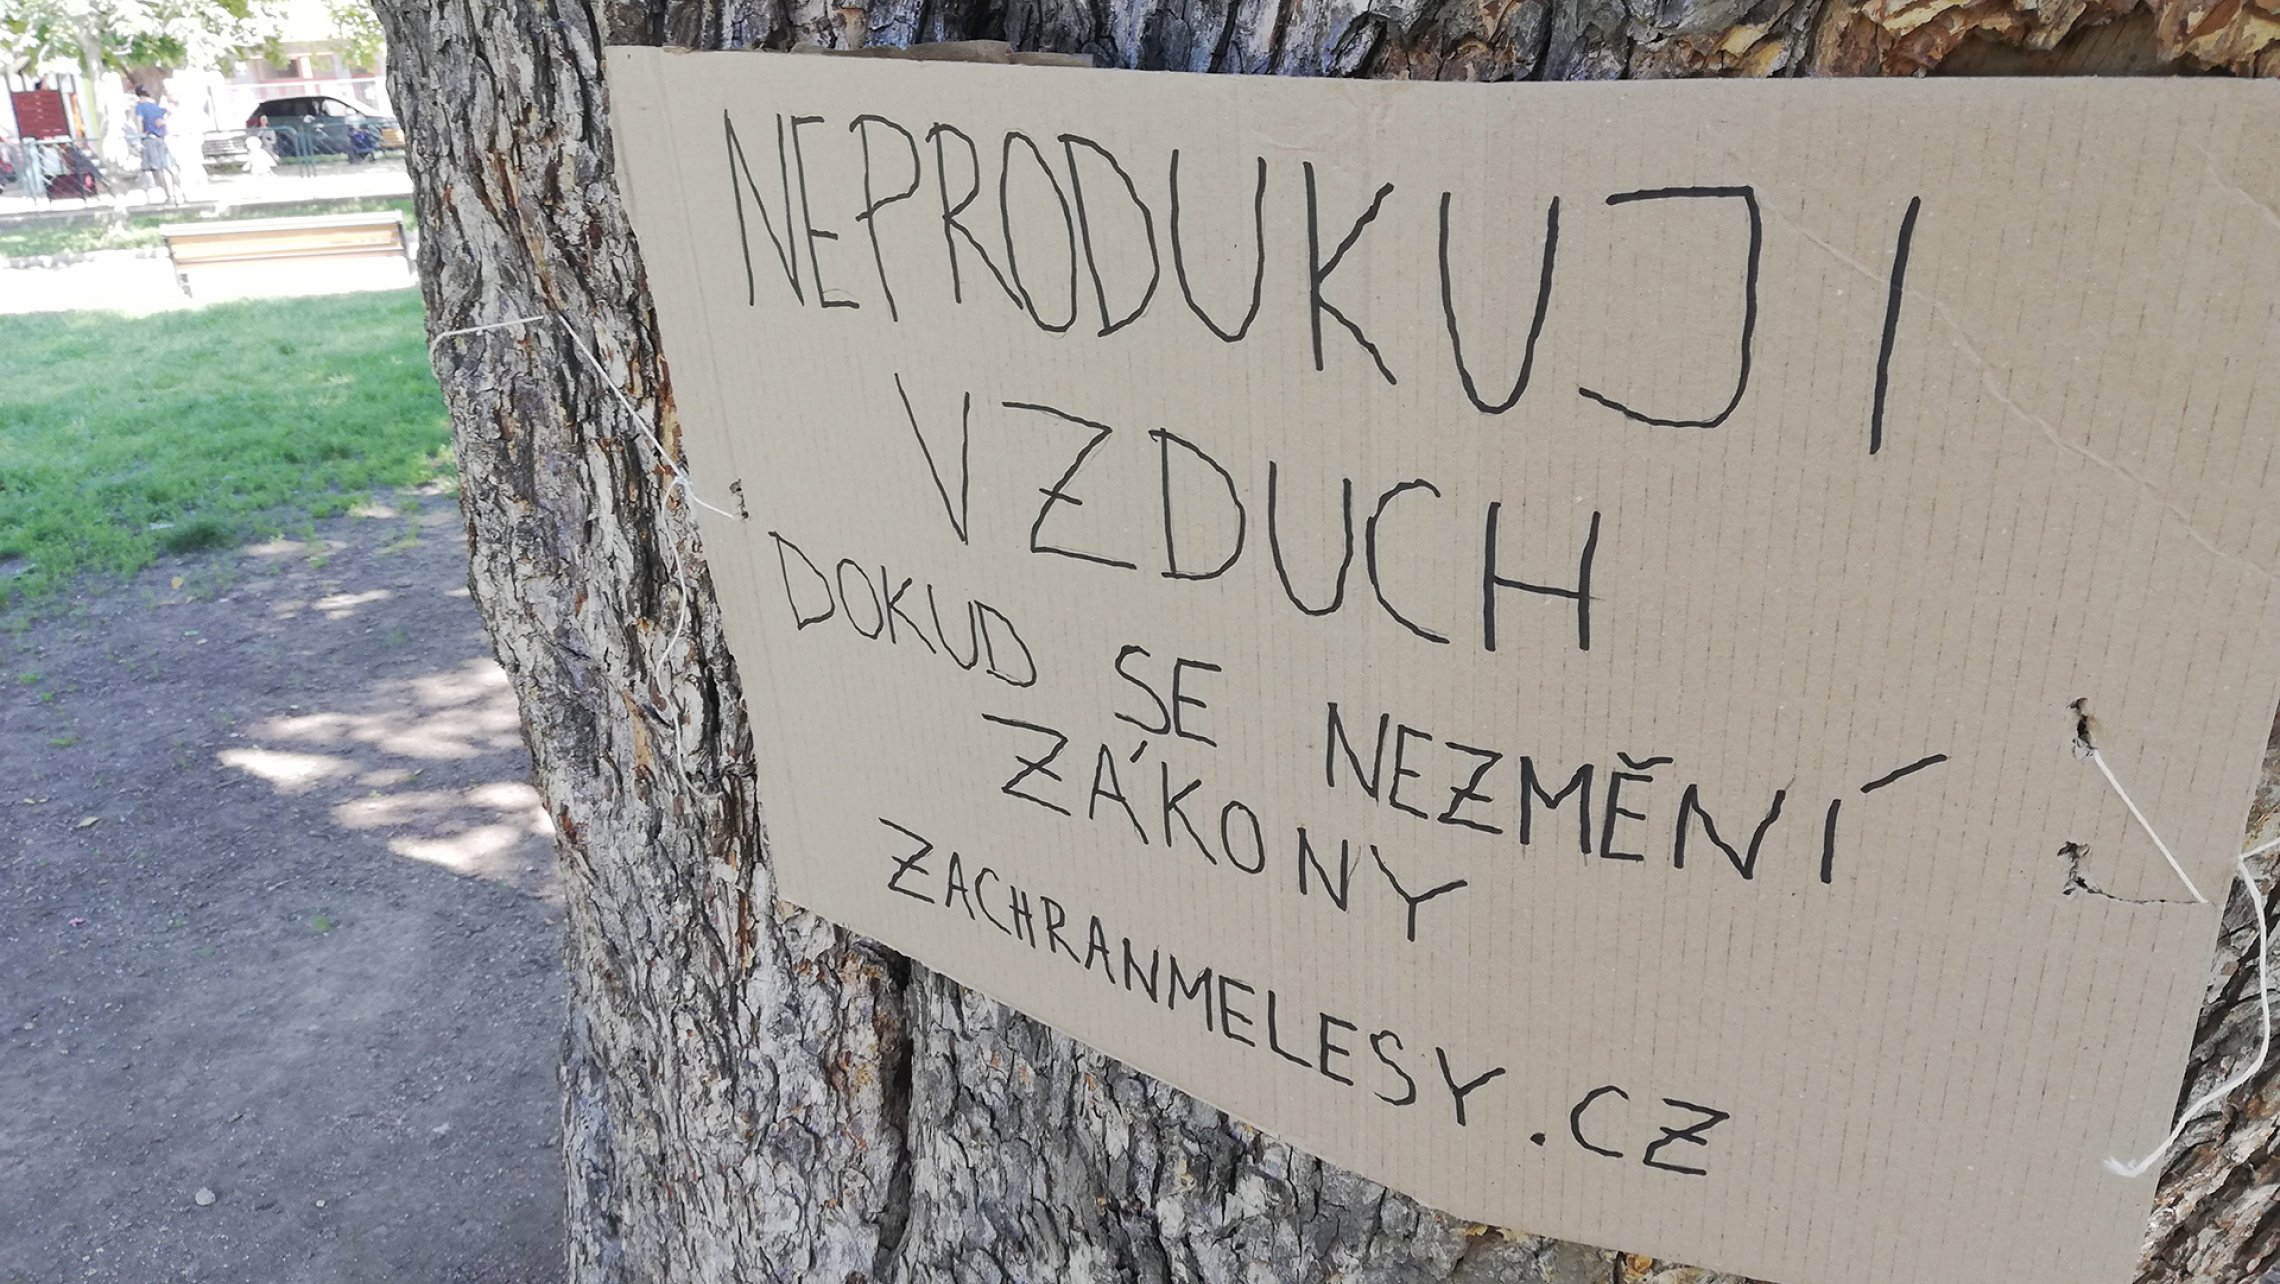 NEPRODUKUJI
VZDUCH
DOKUD SE NEZMĚNÍ
ZÁKONY
ZACHRANMELESY.CZ